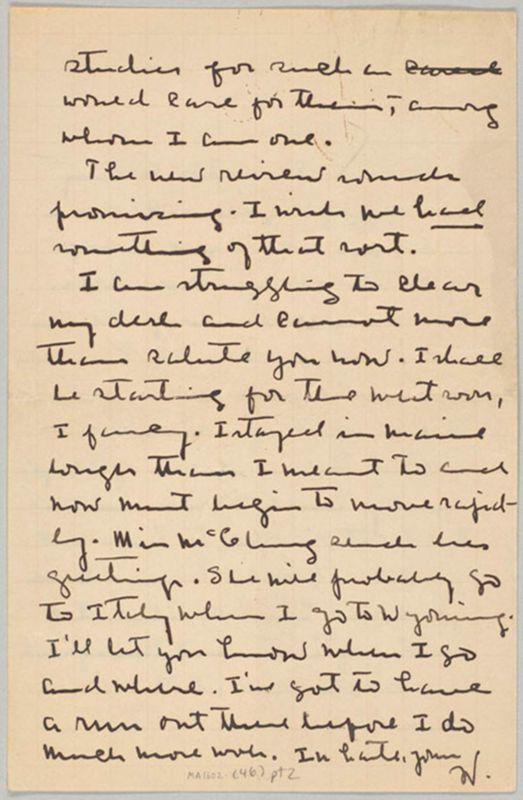 studies for such an cared
would care for them, among
whom I am one.
The new review sounds
promising. I wish we had
something of that sort.
I am struggling to clear
my desk and cannot more
than salute you now. I shall
be starting for the west soon,
I fancy. I stayed in Maine
longer than I meant to and
now must begin to move rapid-
ly. Miss McClung sends her
greetings. She will probably go
to Italy when I go to Wyoming.
I'll let you know when I go
and where. I've got to have
a run out there before I do
much more work. In haste, yours
W.
MA1602. (46.) pt 2